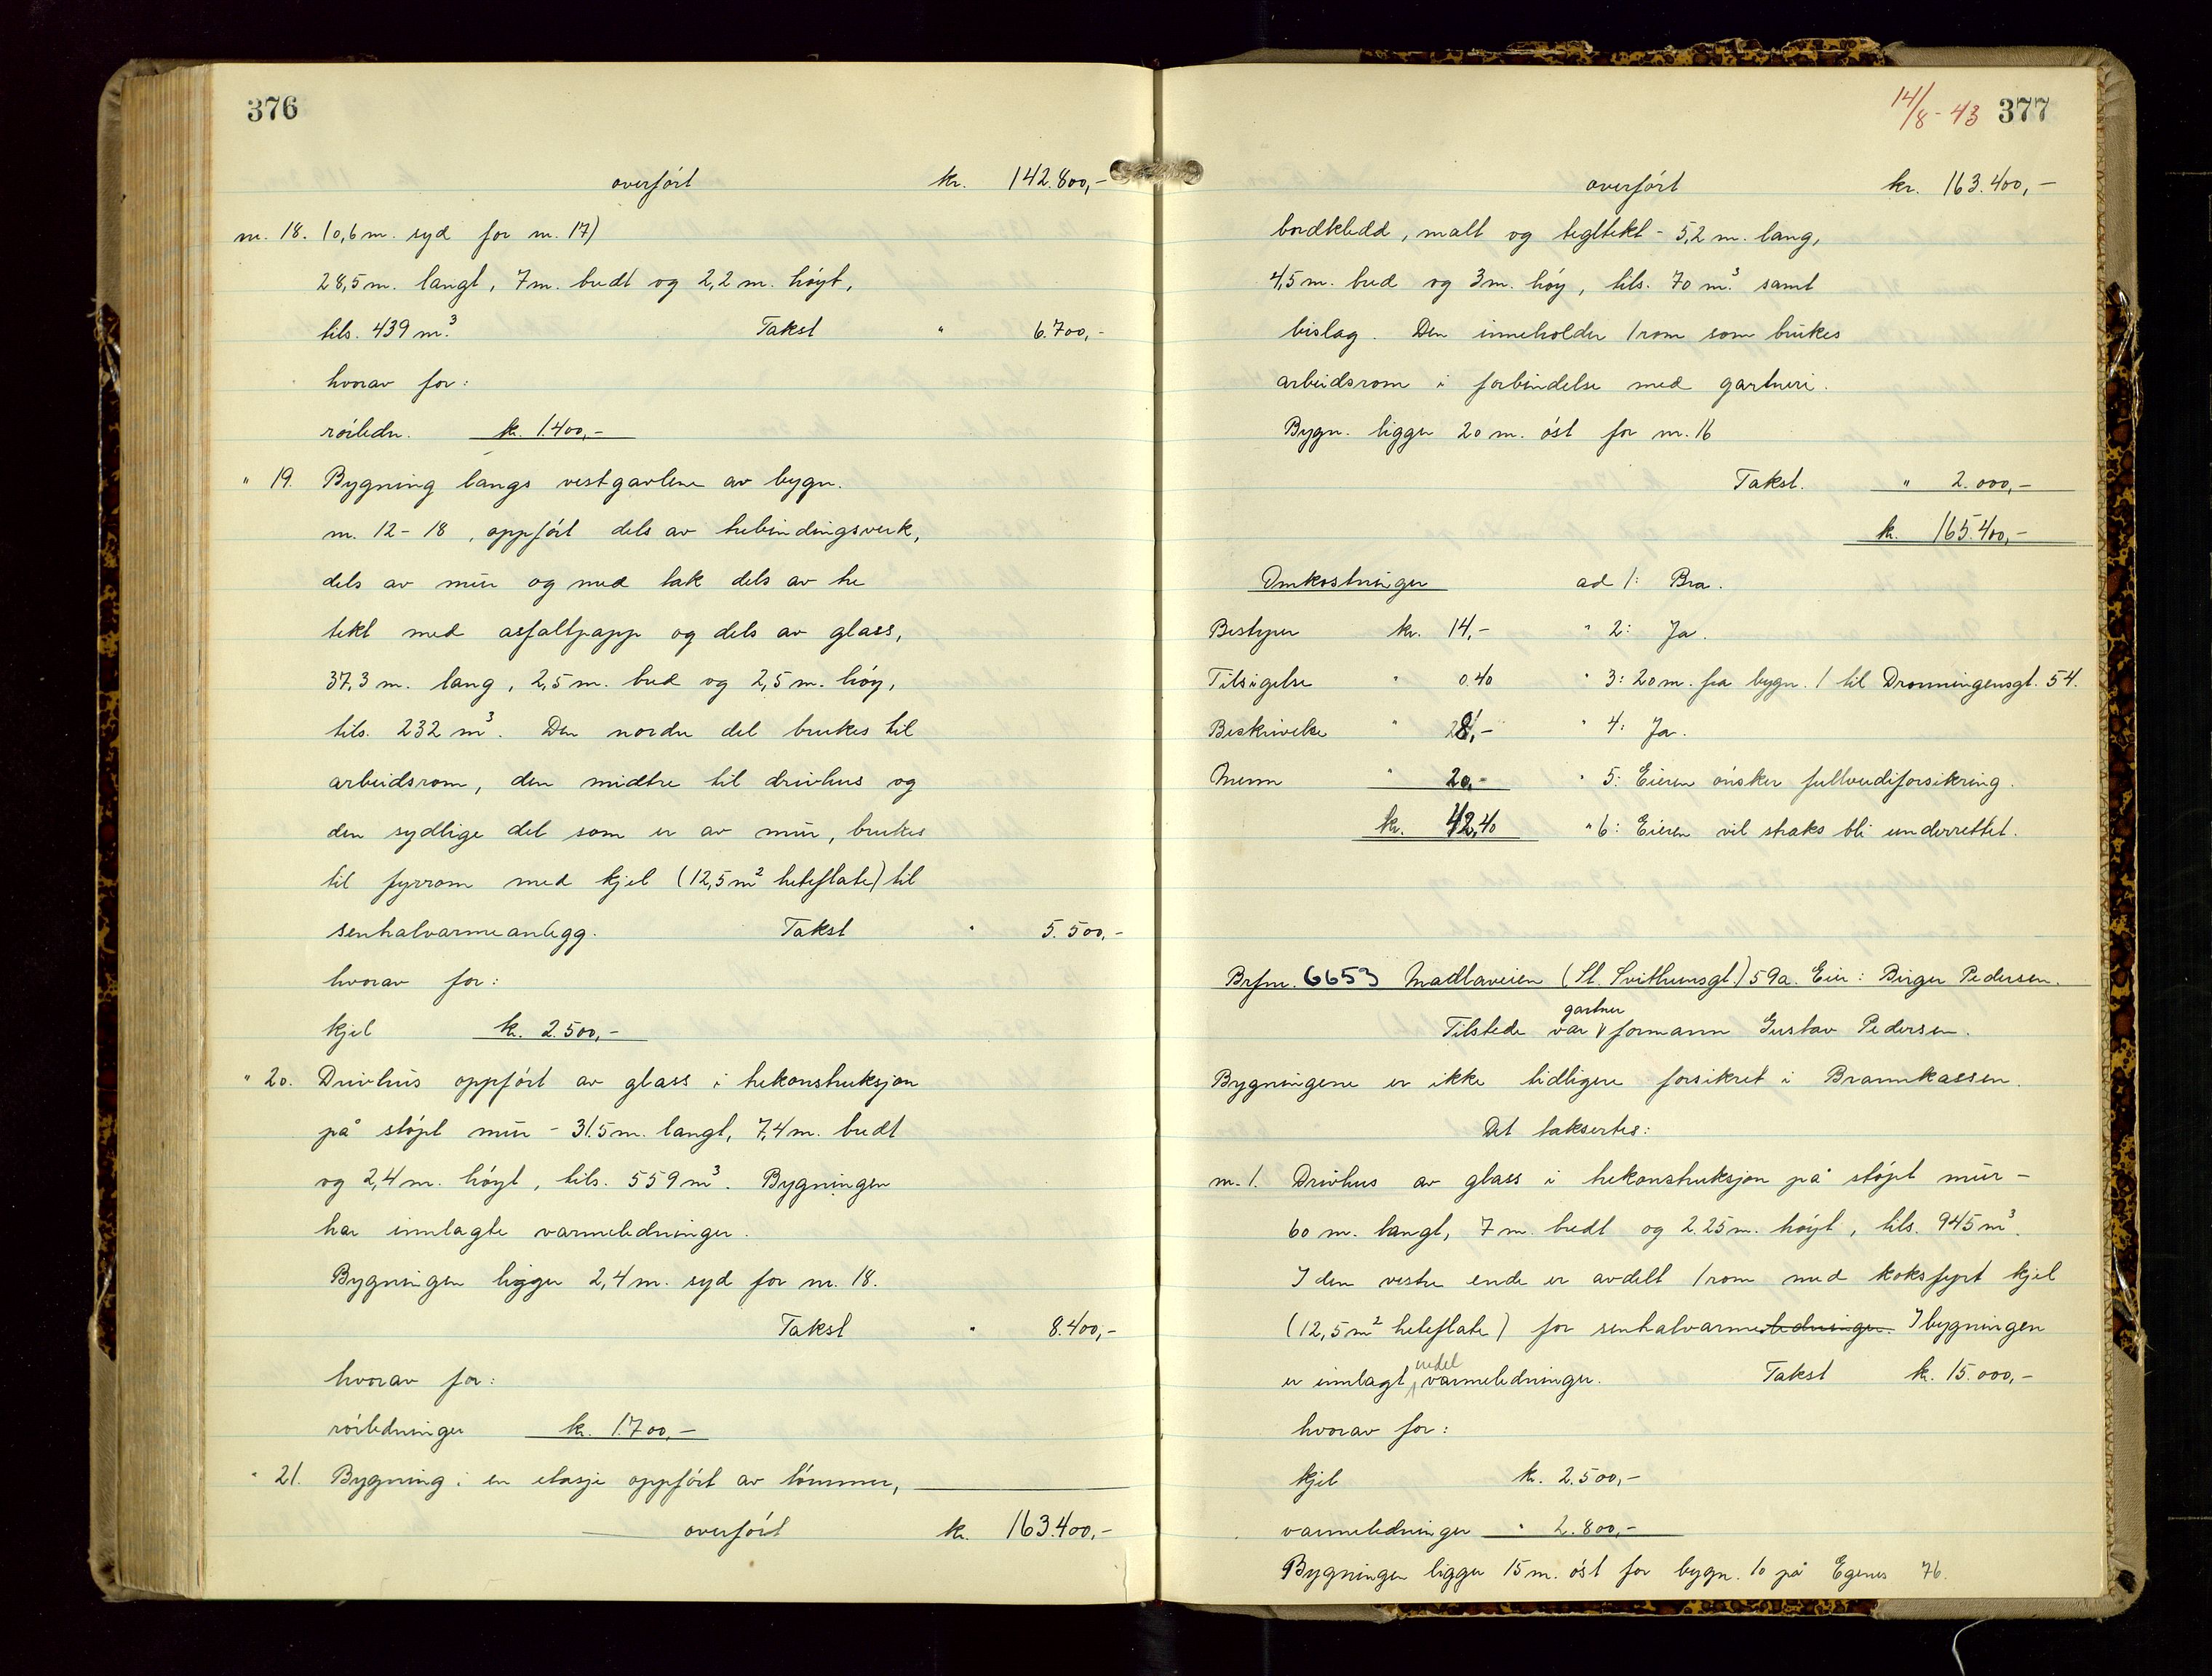 376
overført kr. 142.800,-
nr. 18. (0,6 m. syd for nr. 17)
28,5 m. langt, 7 m. bredt og 2,2 m. høyt,
tils. 439 m.³ Takst " 6.700,-
hvorav for:
rørledn. kr. 1.400,-
" 19. Bygning langs vestgavlene av bygn.
nr. 12-18, oppført dels av trebindingsverk,
dels av mur og med tak dels av tre
tekt med asfaltpapp og dels av glass,
37,3 m. lang, 2,5 m. bred og 2,5 m. høy,
tils. 232 m³. Den nordre del brukes til
arbeidsrom, den midtre til drivhus og
den sydlige del som er av mur, brukes
til fyrrom med kjel (12,5 m² heteflate) til
sentralvarmeanlegg. Takst " 5.500,-
hvorav for:
kjel kr. 2.500,-
" 20. Drivhus oppført av glass i trekonstruksjon
på støpt mur - 31.5 m. langt, 7,4 m. bredt
og 2,4 m. høyt, tils. 559 m³. Bygningen
har innlagte varmeledninger.
Bygningen ligger 2,4 m. syd for nr. 18.
Takst " 8.400,-
hvorav for:
rørledninger kr. 1.700,-
" 21. Bygning i en etasje oppført av tømmer,
overført kr. 163.400,-
14/8-43 377
overført kr. 163.400,-
bordkledd, malt og tegltekt - 5,2 m. lang,
4,5 m. bred og 3 m. høy, tils. 70 m.³ samt
bislag. Den inneholder 1 rom som brukes
arbeidsrom i forbindelse med gartneri.
Bygn. ligger 20 m. øst for nr. 16
Takst. " 2.000,-
kr. 165.400,-
Omkostninger ad 1: Bra.
Bestyrer kr. 14,- " 2: Ja.
Tilsigelse " 0.40 " 3: 20 m. fra bygn. 1 til Dronningensgt. 54.
Beskrivelse " 28,- " 4: Ja.
Menn " 20,- " 5: Eieren ønsker fullverdiforsikring.
kr. 42,40 " 6: Eieren vil straks bli underrettet.
Brfnr. 6653 Madlaveien (St. Svithunsgt.) 59a. Eier: Birger Pedersen.
gartner
Tilstede var formann Gustav Pedersen.
Bygningene er ikke tidligere forsikret i Brannkassen.
Det taksertes:
nr. 1. Drivhus av glass i trekonstruksjon på støpt mur -
60 m. langt, 7 m. bredt og 2.25 m. høyt, tils. 945 m³.
I den vestre ende er avdelt 1 rom med koksfyrt kjel
(12,5 m² heteflate) for sentralvarmeledninger. I bygningen
vedel
er innlagt varmeledninger. Takst kr. 15.000,-
hvorav for:
kjel kr. 2.500,-
varmeledninger " 2.800,-
Bygningen ligger 15 m. øst for bygn. 10 på Egenes 76.